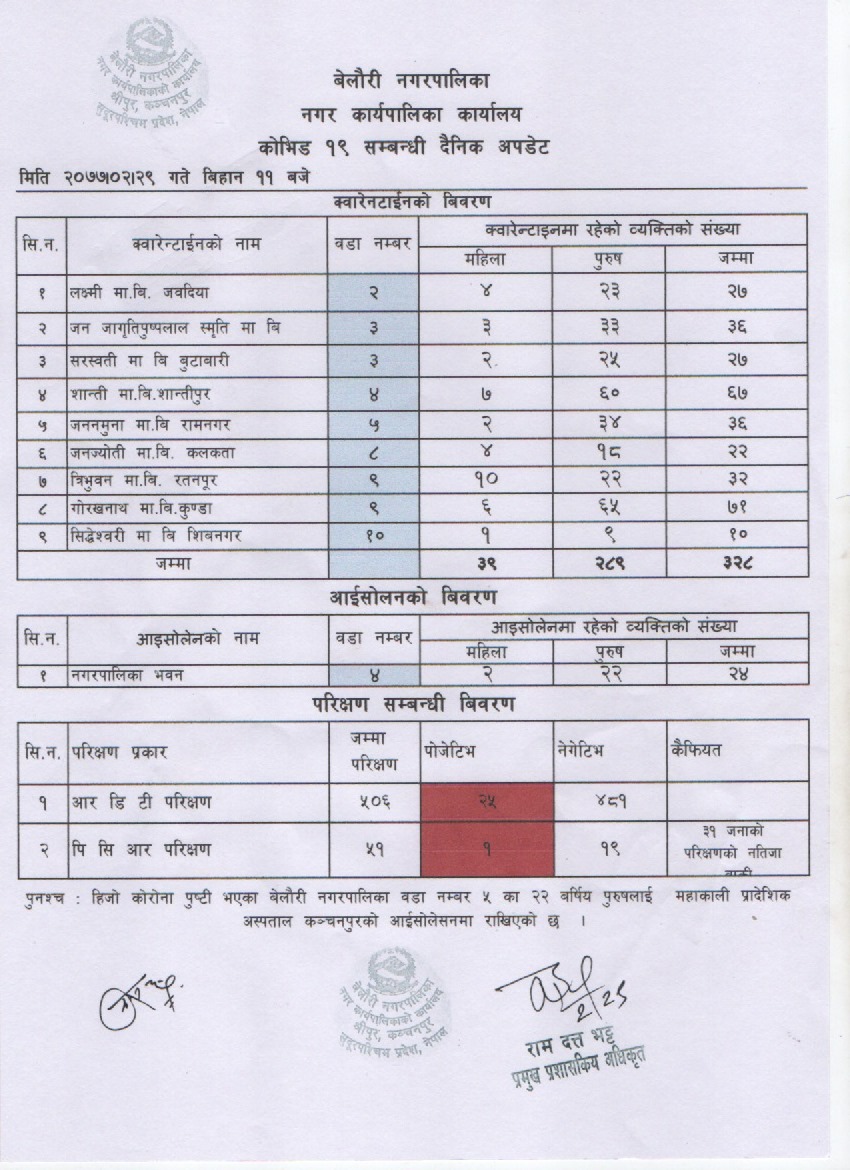 बेलौरी नगरपालिका
नगर कार्यपालिकाको कार्यालय
श्रीपुर, कञ्चनपुर
सुदूरपश्चिम प्रदेश, नेपाल
बेलौरी नगरपालिका
नगर कार्यपालिका कार्यालय
कोभिड १९ सम्बन्धी दैनिक अपडेट
मिति २०७७।०२।२९ गते बिहान ११ बजे
क्वारेनटाईनको बिवरण
सि.न. क्वारेन्टाईनको नाम वडा नम्बर क्वारेन्टाइनमा रहेको व्यक्तिको संख्या
महिला पुरुष जम्मा
१ लक्ष्मी मा.बि. जवदिया २ ४ २३ २७
२ जन जागृतिपुष्पलाल स्मृति मा बि ३ ३ ३३ ३६
३ सरस्वती मा बि बुटाबारी ३ २ २५ २७
४ शान्ती मा.बि.शान्तीपुर ४ ७ ६० ६७
५ जननमुना मा.बि रामनगर ५ २ ३४ ३६
६ जनज्योती मा.बि. कलकता ८ ४ १८ २२
७ त्रिभुवन मा.बि. रतनपूर ९ १० २२ ३२
८ गोरखनाथ मा.बि.कुण्डा ९ ६ ६५ ७१
९ सिद्धेश्वरी मा बि शिबनगर १० १ ९ १०
जम्मा ३९ २८९ ३२८
आईसोलनको बिवरण
सि.न. आइसोलेनको नाम वडा नम्बर आइसोलेनमा रहेको व्यक्तिको संख्या
महिला पुरुष जम्मा
१ नगरपालिका भवन ४ २ २२ २४
परिक्षण सम्बन्धी बिवरण
सि.न. परिक्षण प्रकार जम्मा परिक्षण पोजेटिभ नेगेटिभ कैफियत
१ आर डि टी परिक्षण ५०६ २५ ४८१
२ पि सि आर परिक्षण ५१ १ १९ ३१ जनाको
परिक्षणको नतिजा
बाकी
पुनश्च : हिजो कोरोना पुष्टी भएका बेलौरी नगरपालिका वडा नम्बर ५ का २२ बर्षिय पुरुषलाई महाकाली प्रादेशिक
अस्पताल कञ्चनपुरको आईसोलेसनमा राखिएको छ ।
बेलौरी नगरपालिका
नगर कार्यपालिकाको कार्यालय
श्रीपुर, कञ्चनपुर
सुदूरपश्चिम प्रदेश, नेपाल
राम दत्त भट्ट
प्रमुख प्रशासकिय अधिकृत